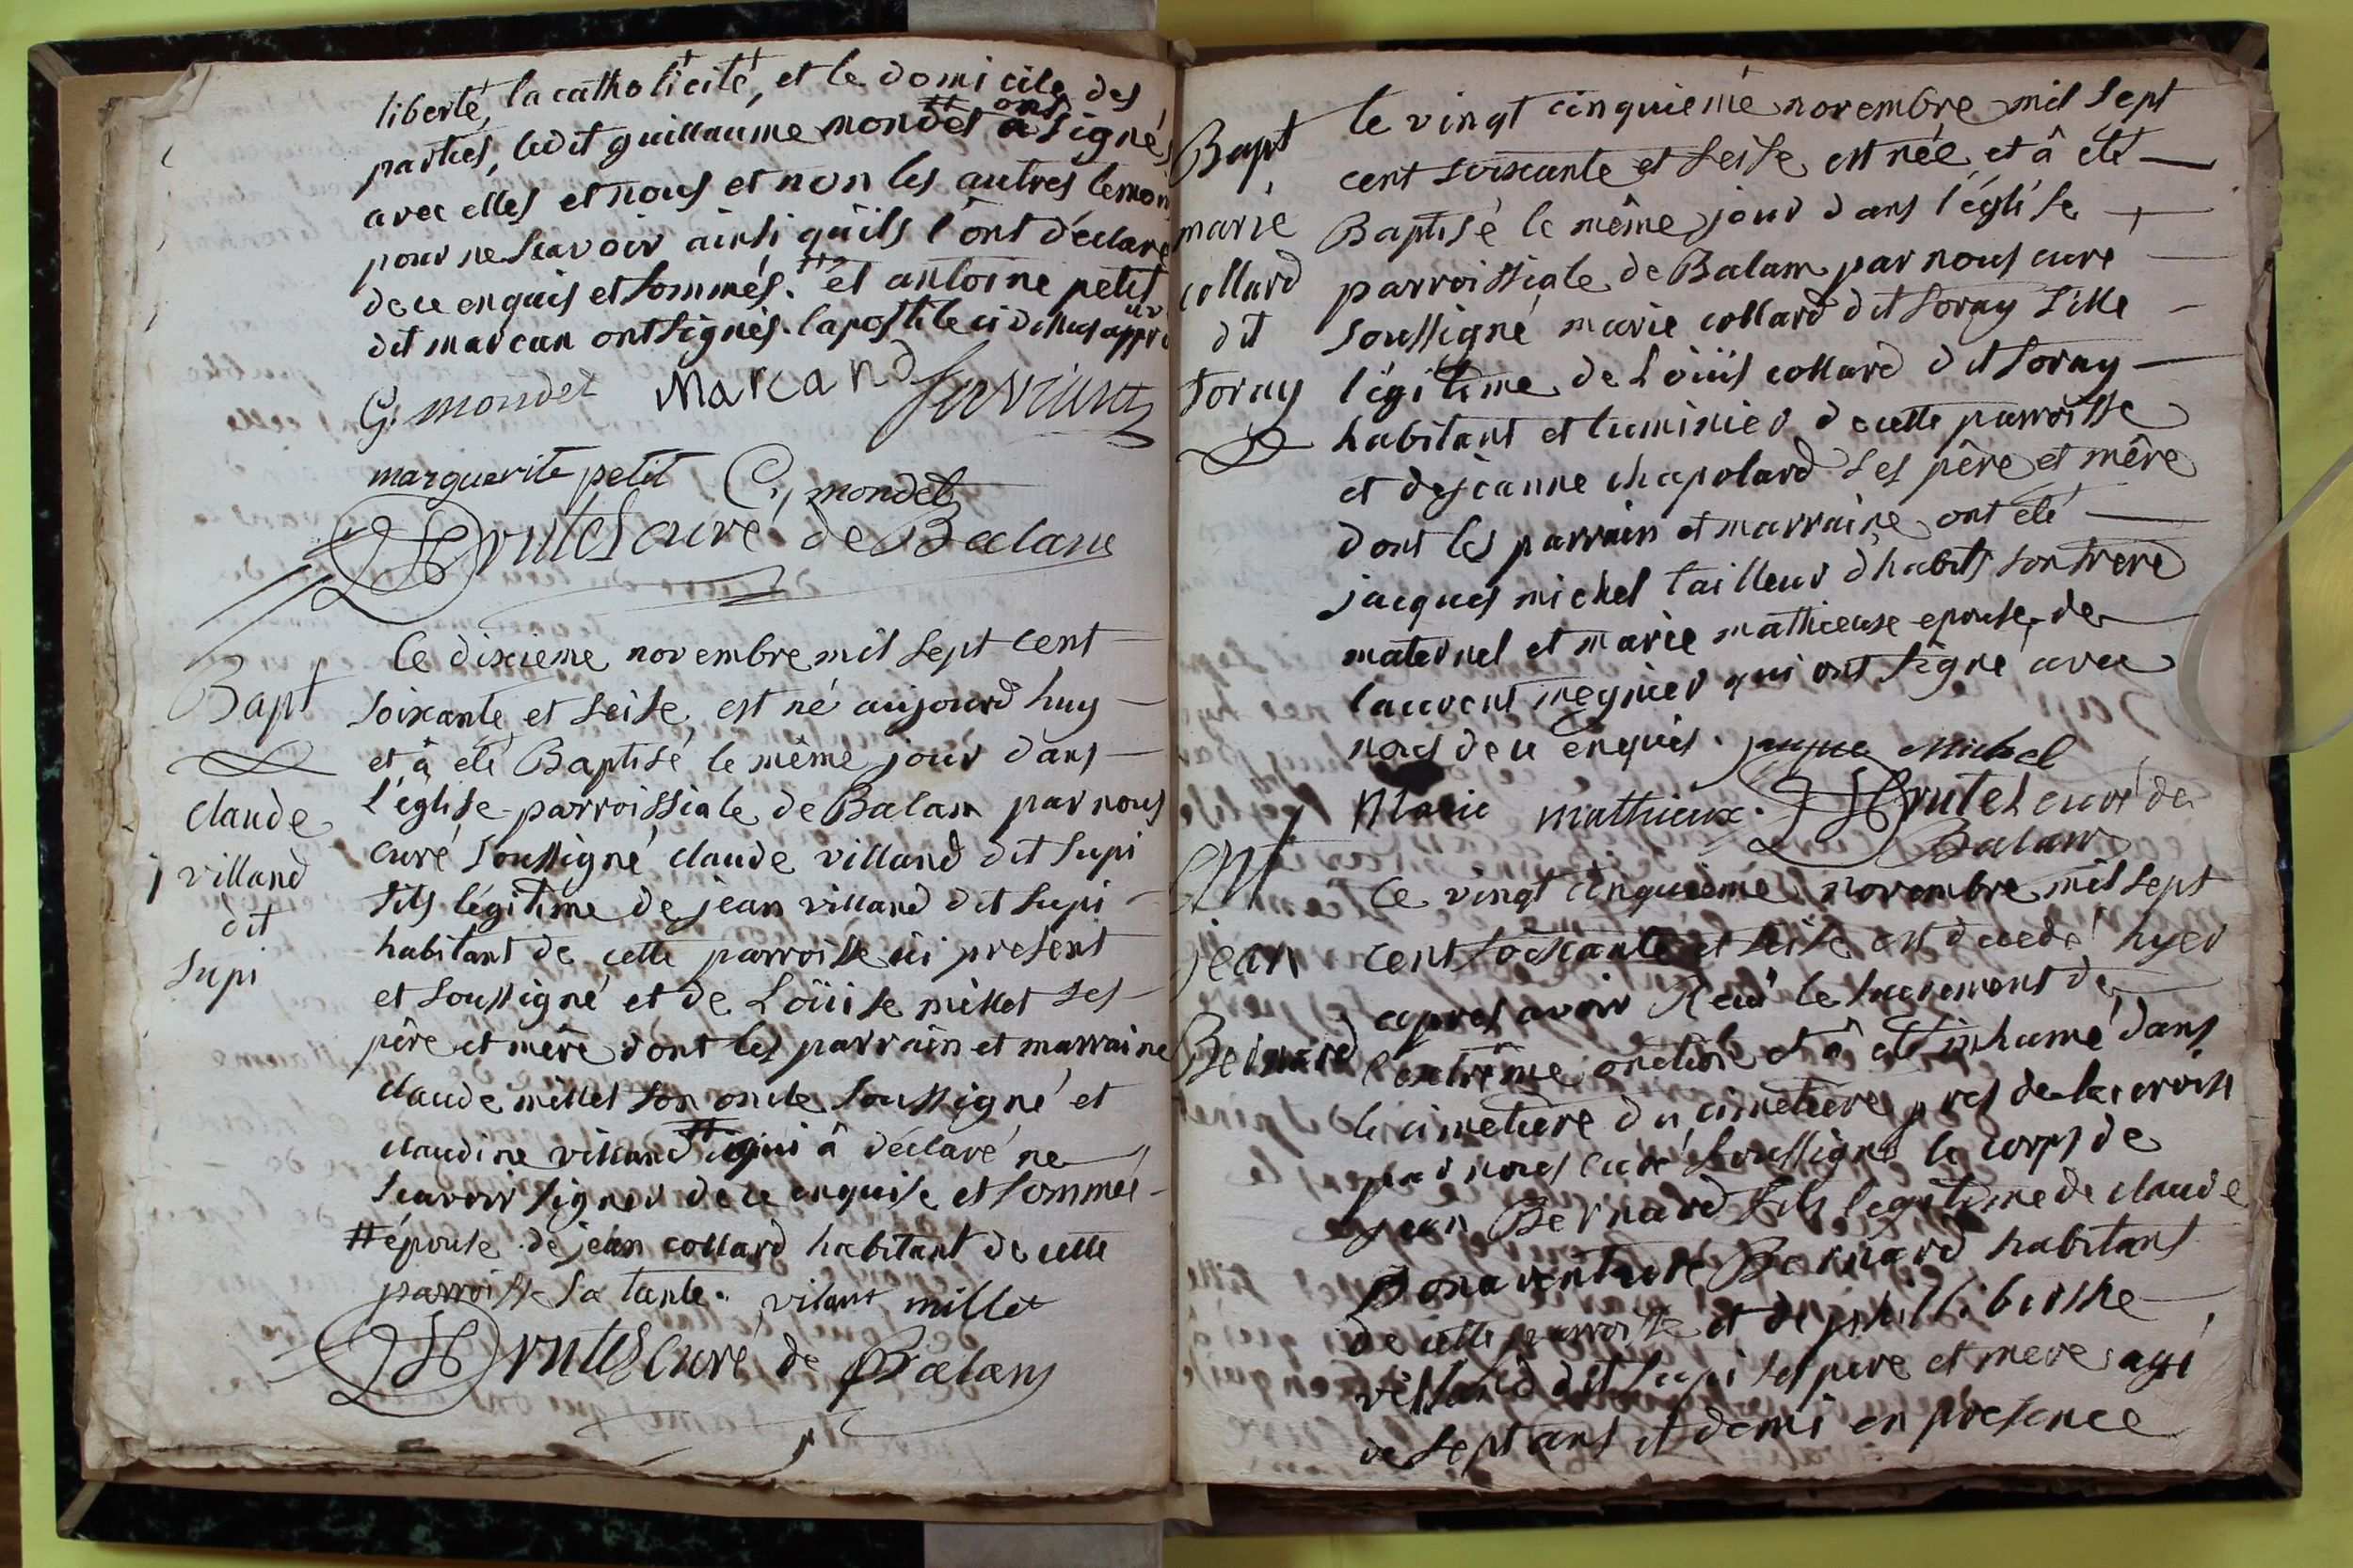 liberté, la catholicité, et le domicile des
parties, ledit guillaume mondet a ont signé
avec elles et nous et non les autres temoin
pour ne scavoir ainsi qu'ils l'ont déclaré
de ce enquis et sommés. et antoine petit
dit marcan ont signés. lapostile ci dessus appr
G. mondet Marcand
marguerite petit C. mondet
curé de Balan
Le dixieme novembre mil sept cent
Bapt soixante et seise, est né aujourd huy
et â eté Baptisé le même jour dans
claude l'eglise parroissiale de Balan par nous
villand curé soussigné claude villand dit supi
dit fils légitime de jean villand dit supi
supi habitant de cette parroisse ici present
et soussigné et de Loüise millet ses
père et mère dont les parrain et marraine
claude millet son oncle soussigné et
claudine villand # qui â declaré ne
scavoir signer de ce enquise et sommée
# épouse de jean collard habitant de cette
parroisse sa tante. vilant millet
curé de Balan
Bapt le vingt cinquiéme novembre mil sept
cent soixante et seise est née et â eté
marie Baptisé le même jour dans l'église
collard parroissiale de Balan par nous curé
dit soussigné marie collard dit soray fille
soray légitime de Loüis collard dit soray
habitant et luminier de cette parroisse
et de jeanne chapolard ses père et mère
dont les parrain et marraine ont eté
jacques michel tailleur d'habits son frere
maternel et marie mathieuse epouse de
laurent megnier qui ont signé avec
nous de ce enquis. jaque Michel
Marie mathieux. curé de
Balan
Ent Le vingt cinquiéme novembre mil sept
jean cent soixante et seise est decedé hyer
apres avoir reçu le sacrement de
Bernard l'extrême onction et â eté inhumé dans
le cimetiere du cimetiere pres de la croix
par nous curé soussigné le corps de
jean Bernard fils legitime de claude
Bonaventure Bernard habitant
de cette parroisse et de philliberthe
villand dit supi ses pere et mere agé
de sept ans et demi en présence